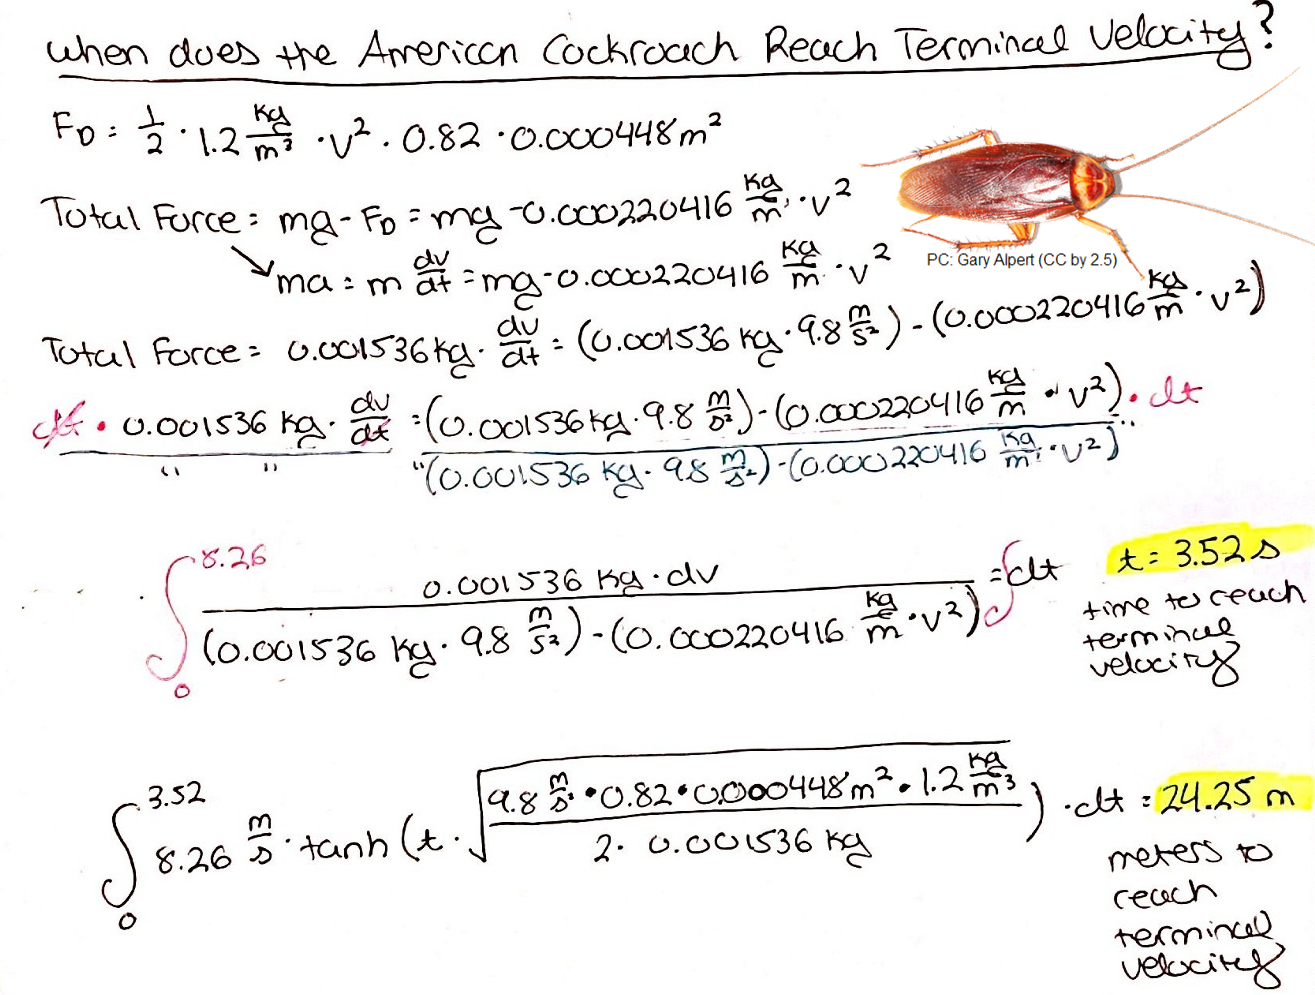 When does the American Cockroach Reach Terminal Velocity?
F_D = 1/2 · 1.2 kg/m³ · v² · 0.82 · 0.000448 m²
Total Force = mg - F_D = mg - 0.000220416 kg/m · v²
ma = m dv/dt = mg - 0.000220416 kg/m · v²
PC: Gary Alpert (CC by 2.5)
Total Force = 0.001536 kg · dv/dt = (0.001536 kg · 9.8 m/s²) - (0.000220416 kg/m · v²)
dt · 0.001536 kg · dv/dt = (0.001536 kg · 9.8 m/s²) - (0.000220416 kg/m · v²) · dt
" " "(0.001536 kg · 9.8 m/s²) - (0.000220416 kg/m · v²)"
∫₀^8.26 0.001536 kg · dv / (0.001536 kg · 9.8 m/s²) - (0.000220416 kg/m · v²) = ∫dt
t = 3.52 s
time to reach
terminal
velocity
∫₀^3.52 8.26 m/s · tanh (t · √(9.8 m/s² · 0.82 · 0.000448 m² · 1.2 kg/m³ / 2 · 0.001536 kg)) · dt = 24.25 m
meters to
reach
terminal
velocity